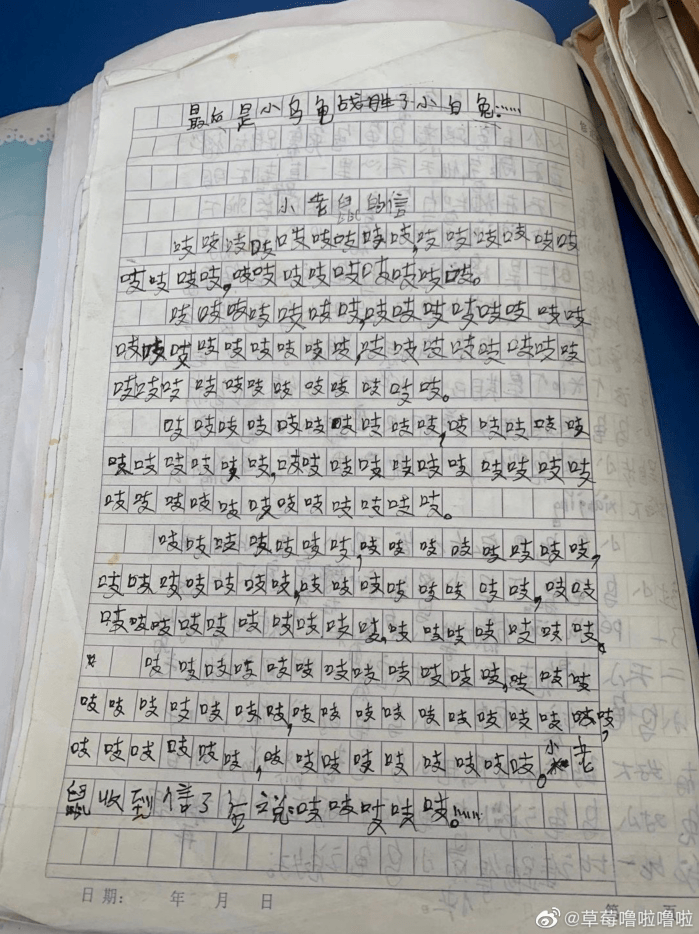 最后是小乌龟战胜了小白兔……
小老鼠的信
吱吱吱吱吱吱吱吱吱,吱吱吱吱吱吱
吱吱吱吱,吱吱吱吱吱吱吱吱吱。
吱吱吱吱吱吱吱,吱吱吱吱吱吱吱吱
吱吱吱吱吱吱吱吱吱,吱吱吱吱吱吱吱吱
吱吱吱吱吱吱吱吱吱吱吱吱。
吱吱吱吱吱吱吱吱吱吱,吱吱吱吱吱
吱吱吱吱吱吱,吱吱吱吱吱吱吱吱吱吱吱
吱吱吱吱吱吱吱吱吱吱吱吱。
吱吱吱吱吱吱吱,吱吱吱吱吱吱吱吱,
吱吱吱吱吱吱吱,吱吱吱吱吱吱吱吱,吱吱
吱吱吱吱吱吱吱吱吱吱,吱吱吱吱吱吱吱。
吱吱吱吱吱吱吱吱吱吱吱吱,吱吱吱
吱吱吱吱吱吱吱,吱吱吱吱吱吱吱吱吱吱吱,
吱吱吱吱吱吱,吱吱吱吱吱吱吱吱吱。小老
鼠收到信了说:吱吱吱吱吱。……
日期: 年 月 日 第 页
@草莓噜啦噜啦